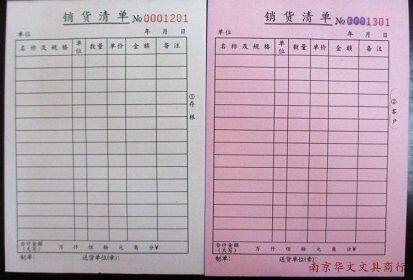 销货清单 №0001201
单位 年 月 日
名称及规格 单位 数量 单价 金额 备注
①存根
合计金额(大写) 万 仟 佰 拾 元 角 分¥
制单: 送货单位(章):
销货清单 №0001301
单位 年 月 日
名称及规格 单位 数量 单价 金额 备注
②客户
合计金额(大写) 万 仟 佰 拾 元 角 分¥
制单: 送货单位(章):
南京华文文具商行